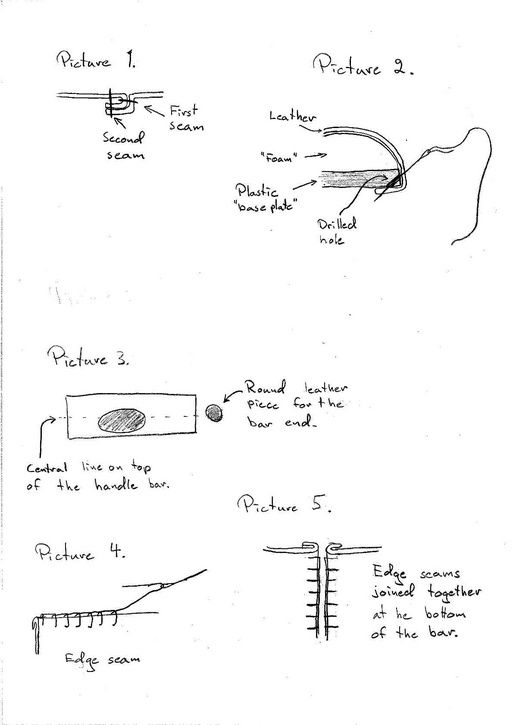 Picture 1.
First
seam
Second
seam
Picture 2.
Leather
"Foam"
Plastic
"base plate"
Drilled
hole
Picture 3.
Round leather
piece for the
bar end.
Central line on top
of the handle bar.
Picture 4.
Edge seam
Picture 5.
Edge seams
joined together
at he bottom
of the bar.